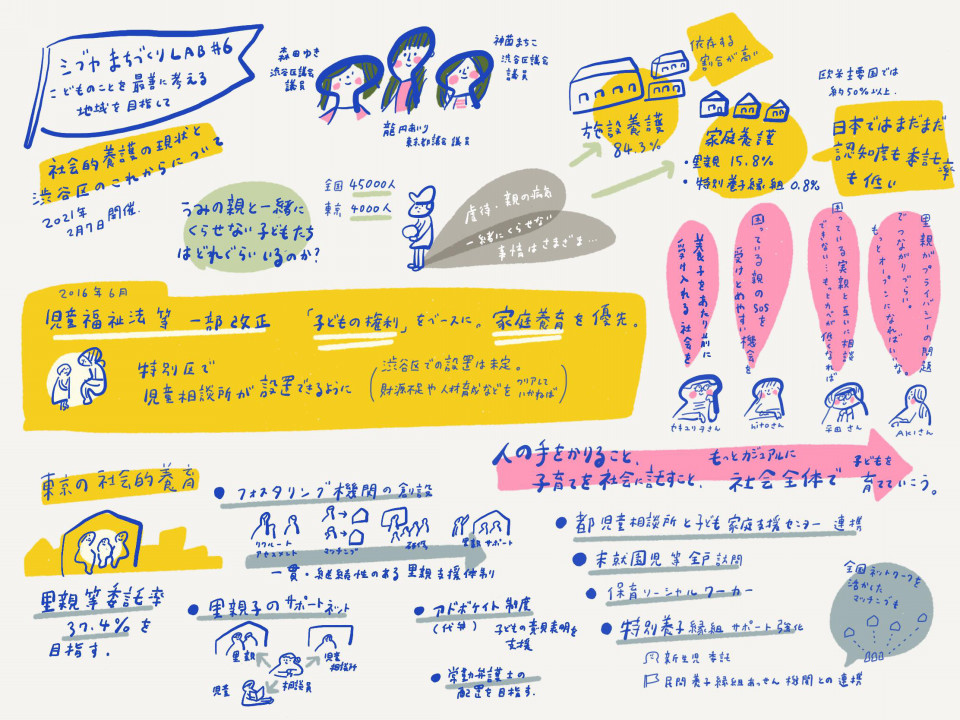 シブヤ まちづくりLAB #6
こどものことを 最善に考える
地域を目指して
社会的養護の現状と
渋谷区のこれからについて
2021年
2月7日 開催.
森田ゆき
渋谷区議会
議員
龍円あいり
東京都議会 議員
神薗まちこ
渋谷区議会
議員
うみの親と一緒に
くらせない子どもたち
はどれぐらいいるのか?
全国 45000人
東京 4000人
虐待・親の病気
一緒にくらせない
事情はさまざま…
施設養護
84.3%
依存する
割合が高い
家庭養護
・里親 15.8%
・特別養子縁組 0.8%
欧米主要国では
約50%以上.
日本ではまだまだ
認知度も委託率
も低い
2016年6月
児童福祉法等 一部改正
「子どもの権利」をベースに。家庭養育を優先。
特別区で
児童相談所が設置できるように
(渋谷区での設置は未定。
財源不足や人材育成などをクリアして
いかねば)
養子をあたり前に
受け入れる社会を
困っている親のSOSを
受けとめやすい機会を
困っている実親と互いに相談
できない…もっとカベが低くなれば
里親がプライバシーの問題
でつながりづらい。
もっとオープンになればいいな。
ヤキユリヲさん
hitoさん
平田さん
AKIさん
人の手をかりること、
子育てを社会に託すこと、
もっとカジュアルに
社会全体で
子どもを
育てていこう。
東京の社会的養育
里親等委託率
37.4%を
目指す.
●フォスタリング機関の創設
リクルート
アセスメント
マッチング
研修
里親サポート
一貫・継続性のある里親支援体制
●里親子のサポートネット
里親
児童
相談所
児童
相談員
●アドボケイト制度
(代弁) 子どもの意見表明を
支援
●常勤弁護士の
配置を目指す.
●都児童相談所と子ども家庭支援センター連携
●未就園児等全戸訪問
●保育ソーシャルワーカー
●特別養子縁組サポート強化
新生児委託
民間養子縁組あっせん機関との連携
全国ネットワークを
活かした
マッチングも